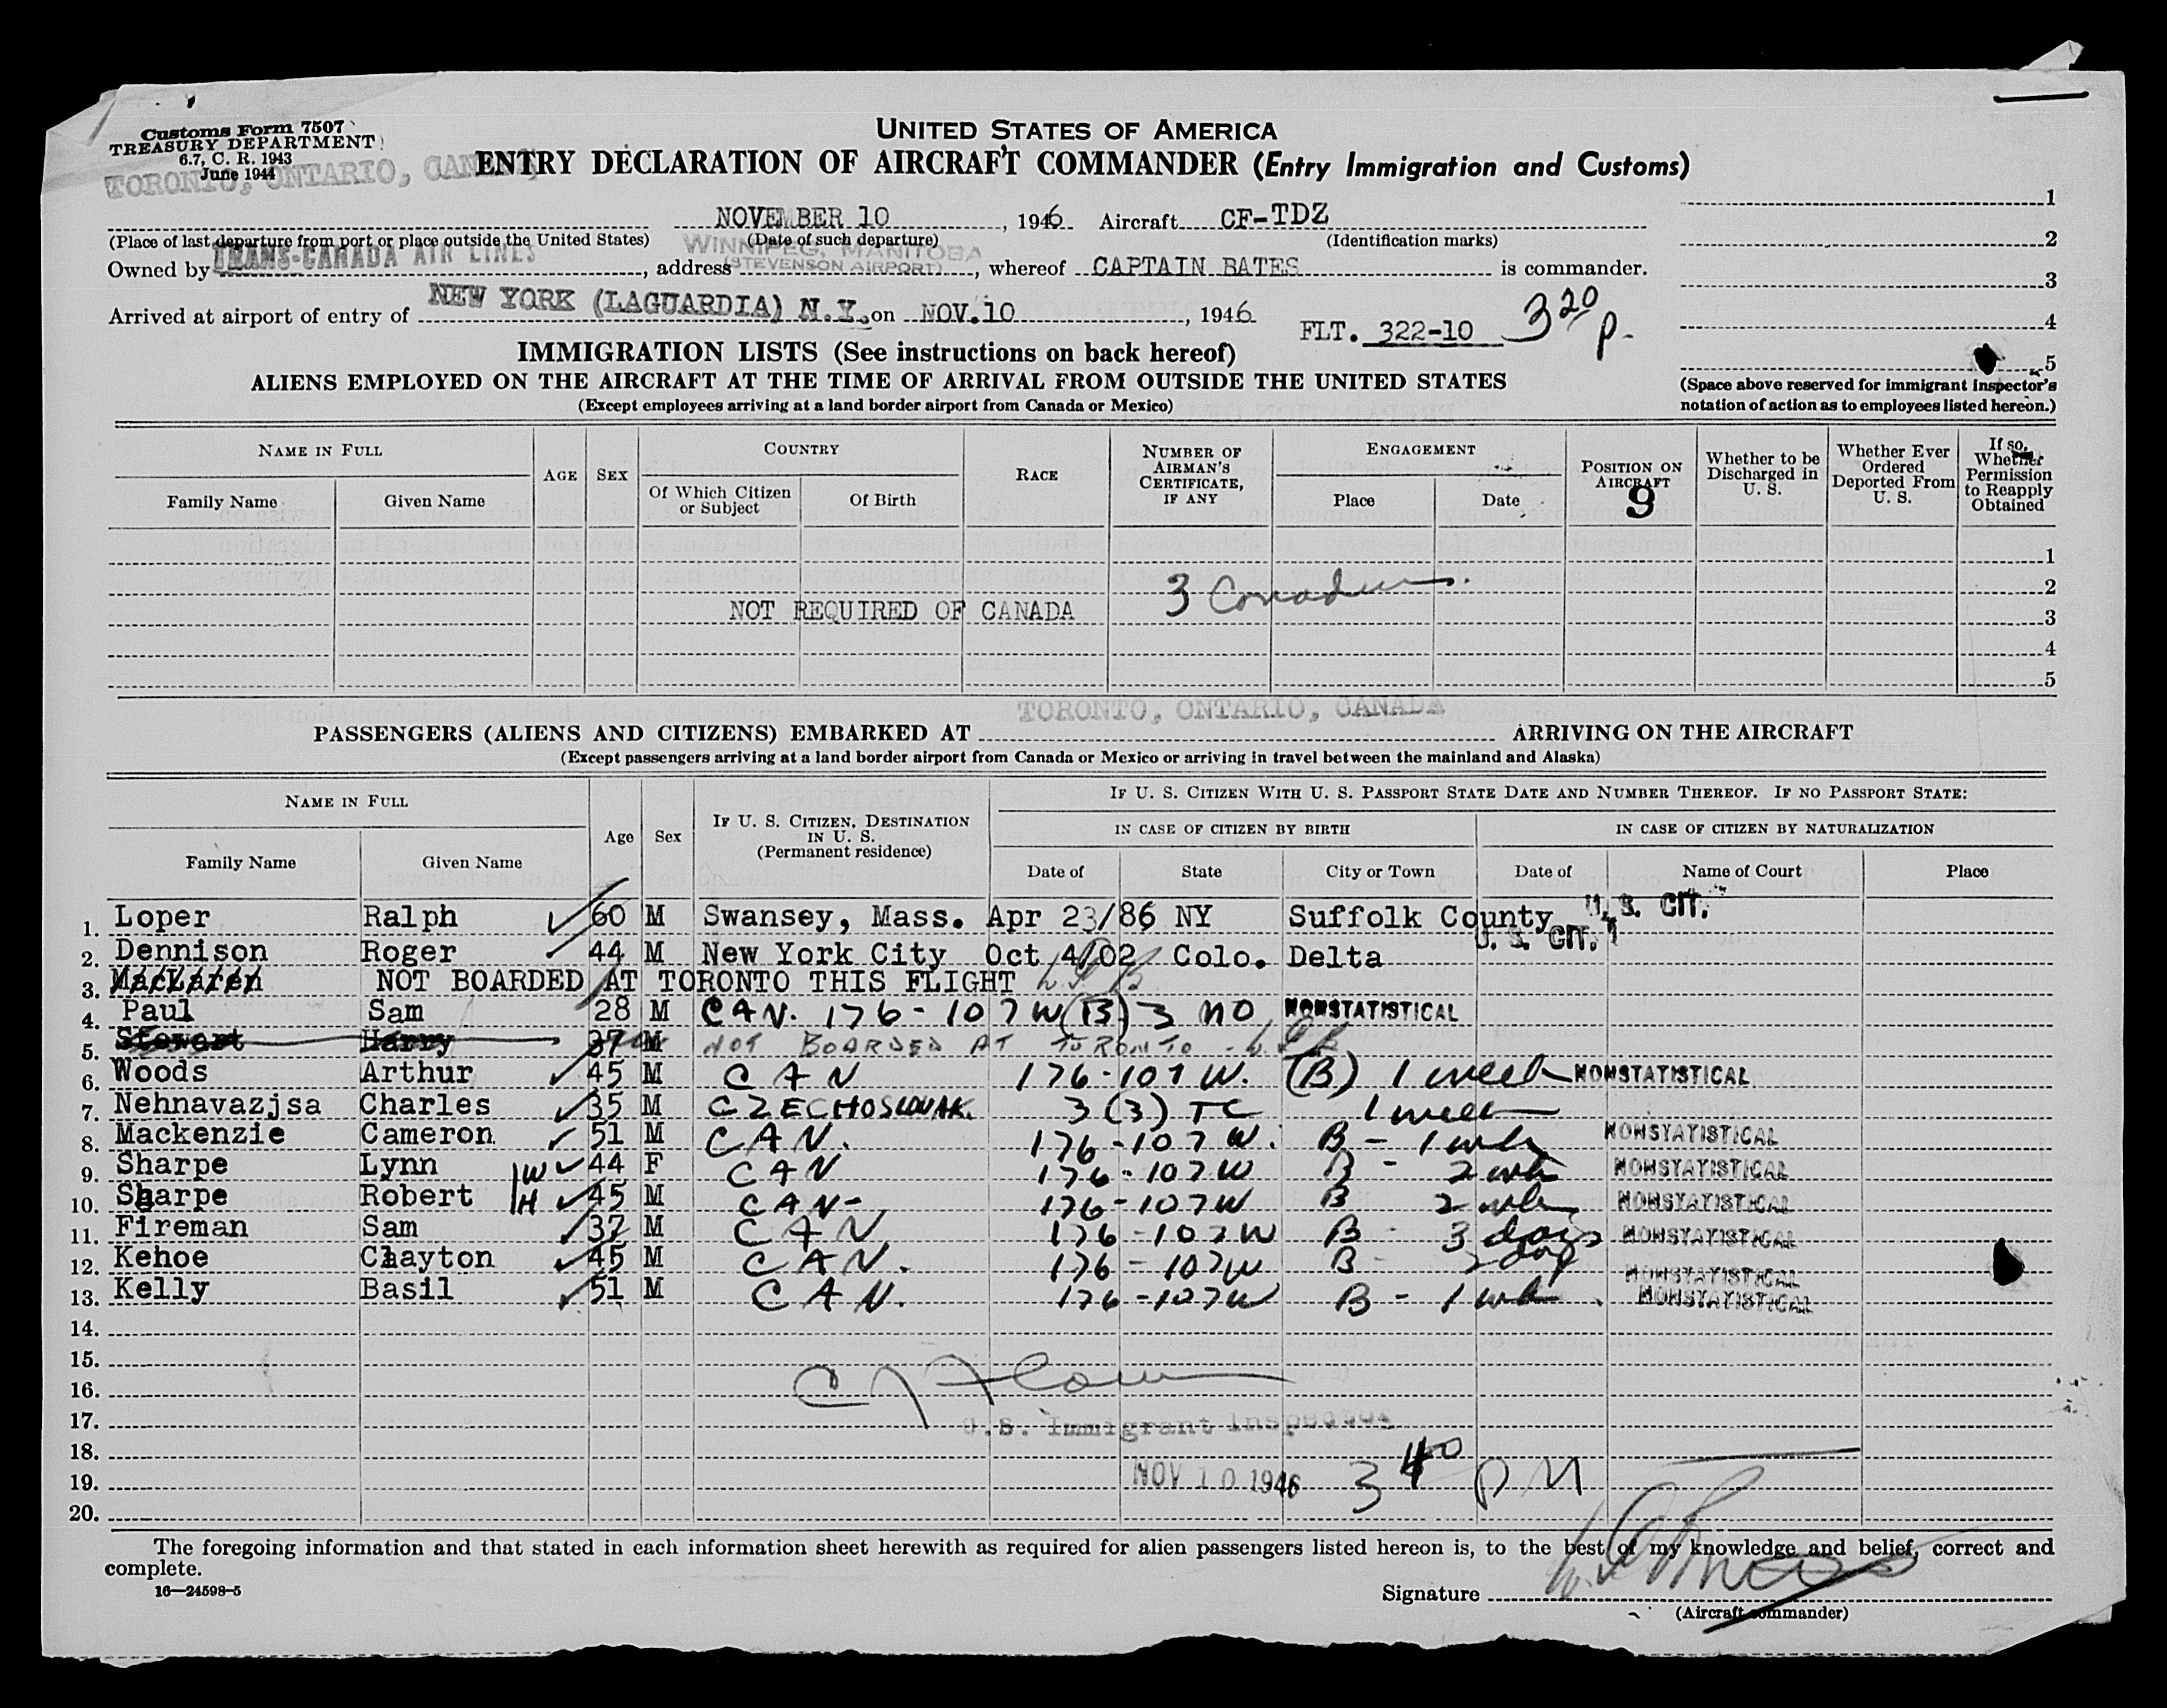 Customs Form 7507
TREASURY DEPARTMENT
6.7, C. R. 1943
June 1944
UNITED STATES OF AMERICA
ENTRY DECLARATION OF AIRCRAFT COMMANDER (Entry Immigration and Customs)
TORONTO, ONTARIO, CANADA
NOVEMBER 10, 1946 Aircraft CF-TDZ
(Place of last departure from port or place outside the United States) (Date of such departure) (Identification marks)
WINNIPEG, MANITOBA
Owned by TRANS-CANADA AIR LINES, address (STEVENSON AIRPORT), whereof CAPTAIN BATES is commander.
Arrived at airport of entry of NEW YORK (LAGUARDIA) N.Y. on NOV.10, 1946 FLT. 322-10 3 20 p.
1
2
3
4
5
(Space above reserved for immigrant inspector's
notation of action as to employees listed hereon.)
IMMIGRATION LISTS (See instructions on back hereof)
ALIENS EMPLOYED ON THE AIRCRAFT AT THE TIME OF ARRIVAL FROM OUTSIDE THE UNITED STATES
(Except employees arriving at a land border airport from Canada or Mexico)
NAME IN FULL
Family Name
Given Name
AGE
SEX
COUNTRY
Of Which Citizen or Subject
Of Birth
RACE
NUMBER OF AIRMAN'S CERTIFICATE, IF ANY
ENGAGEMENT
Place
Date
POSITION ON AIRCRAFT
9
Whether to be Discharged in U. S.
Whether Ever Ordered Deported From U. S.
If so, Whether Permission to Reapply Obtained
1
2
3 Canadian
NOT REQUIRED OF CANADA 3
4
5
TORONTO, ONTARIO, CANADA
PASSENGERS (ALIENS AND CITIZENS) EMBARKED AT ARRIVING ON THE AIRCRAFT
(Except passengers arriving at a land border airport from Canada or Mexico or arriving in travel between the mainland and Alaska)
NAME IN FULL
Family Name
Given Name
Age
Sex
IF U. S. CITIZEN, DESTINATION IN U. S.
(Permanent residence)
IF U. S. CITIZEN WITH U. S. PASSPORT STATE DATE AND NUMBER THEREOF. IF NO PASSPORT STATE:
IN CASE OF CITIZEN BY BIRTH
IN CASE OF CITIZEN BY NATURALIZATION
Date of
State
City or Town
Date of
Name of Court
Place
1. Loper Ralph 60 M Swansey, Mass. Apr 23/86 NY Suffolk County U. S. CIT.
2. Dennison Roger 44 M New York City Oct 4/02 Colo. Delta U. S. CIT.
3. MacLaren NOT BOARDED AT TORONTO THIS FLIGHT
4. Paul Sam 28 M CAN. 176-107W (B) 3 MO NONSTATISTICAL
5. Stewart Harry 37 M NOT BOARDED AT TORONTO
6. Woods Arthur 45 M CAN 176-107W. (B) 1 week NONSTATISTICAL
7. Nehnavazjsa Charles 35 M CZECHOSLOVAK. 3(3) TC 1 week
8. Mackenzie Cameron 51 M CAN. 176-107W. B - 1 wk NONSTATISTICAL
9. Sharpe Lynn W 44 F CAN 176-107W B - 2 wk NONSTATISTICAL
10. Sharpe Robert H 45 M CAN- 176-107W B 2 wk NONSTATISTICAL
11. Fireman Sam 37 M CAN 176-107W B - 3 days NONSTATISTICAL
12. Kehoe Clayton 45 M CAN. 176-107W B - 2 day NONSTATISTICAL
13. Kelly Basil 51 M CAN. 176-107W B - 1 wk. NONSTATISTICAL
14.
15.
16.
17. U.S. Immigrant Inspector
18.
19. NOV 10 1946 3 40 PM
20.
The foregoing information and that stated in each information sheet herewith as required for alien passengers listed hereon is, to the best of my knowledge and belief, correct and
complete.
16—24598-5
Signature
(Aircraft commander)